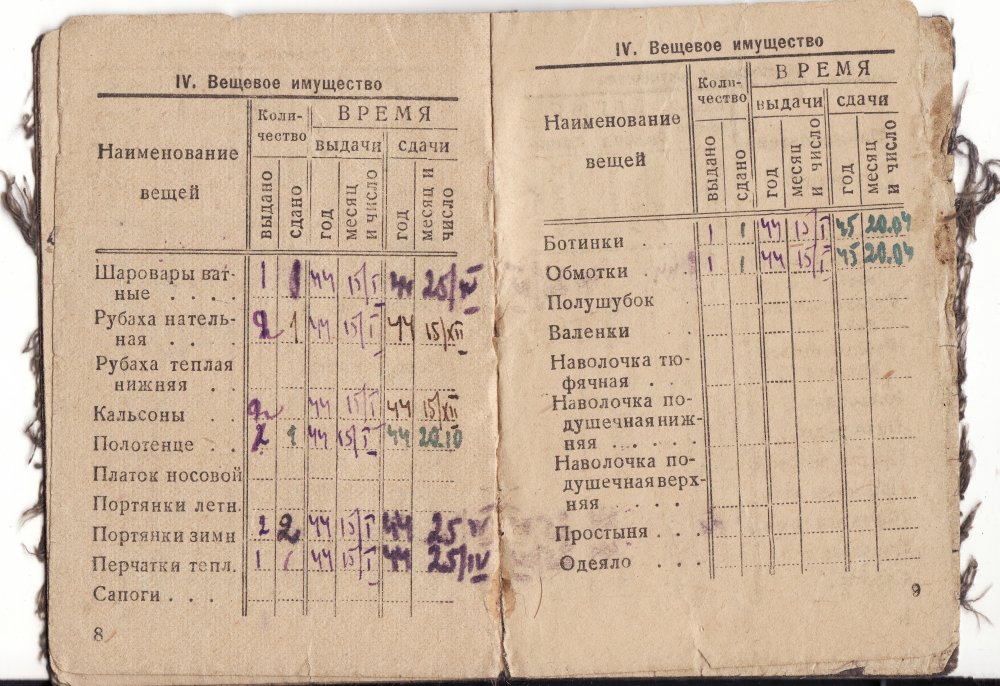 IV. Вещевое имущество
Наименование вещей
Коли-
чество
ВРЕМЯ
выдачи
сдачи
выдано
сдано
год
месяц
и число
год
месяц и
число
Шаровары ват-
ные . . . . 1 44 15/I 44 25/IV
Рубаха натель-
ная . . . . 2 1 44 15/I 44 15/XII
Рубаха теплая
нижняя . .
Кальсоны . 2 44 15/I 44 15/XII
Полотенце . 2 1 44 15/I 44 20.10
Платок носовой
Портянки летн.
Портянки зимн 2 2 44 15/I 44 25
Перчатки тепл. 1 44 15/I 44 25/IV
Сапоги . . .
8
IV. Вещевое имущество
Наименование
вещей
Коли-
чество
ВРЕМЯ
выдачи
сдачи
выдано
сдано
год
месяц
и число
год
месяц
и число
Ботинки . . 1 1 44 15/I 45 20.04
Обмотки . . 1 1 44 15/I 45 20.04
Полушубок
Валенки
Наволочка тю-
фячная . . .
Наволочка по-
душечная ниж-
няя . . . . .
Наволочка по-
душечная верх-
няя . . .
Простыня . . .
Одеяло . . .
9